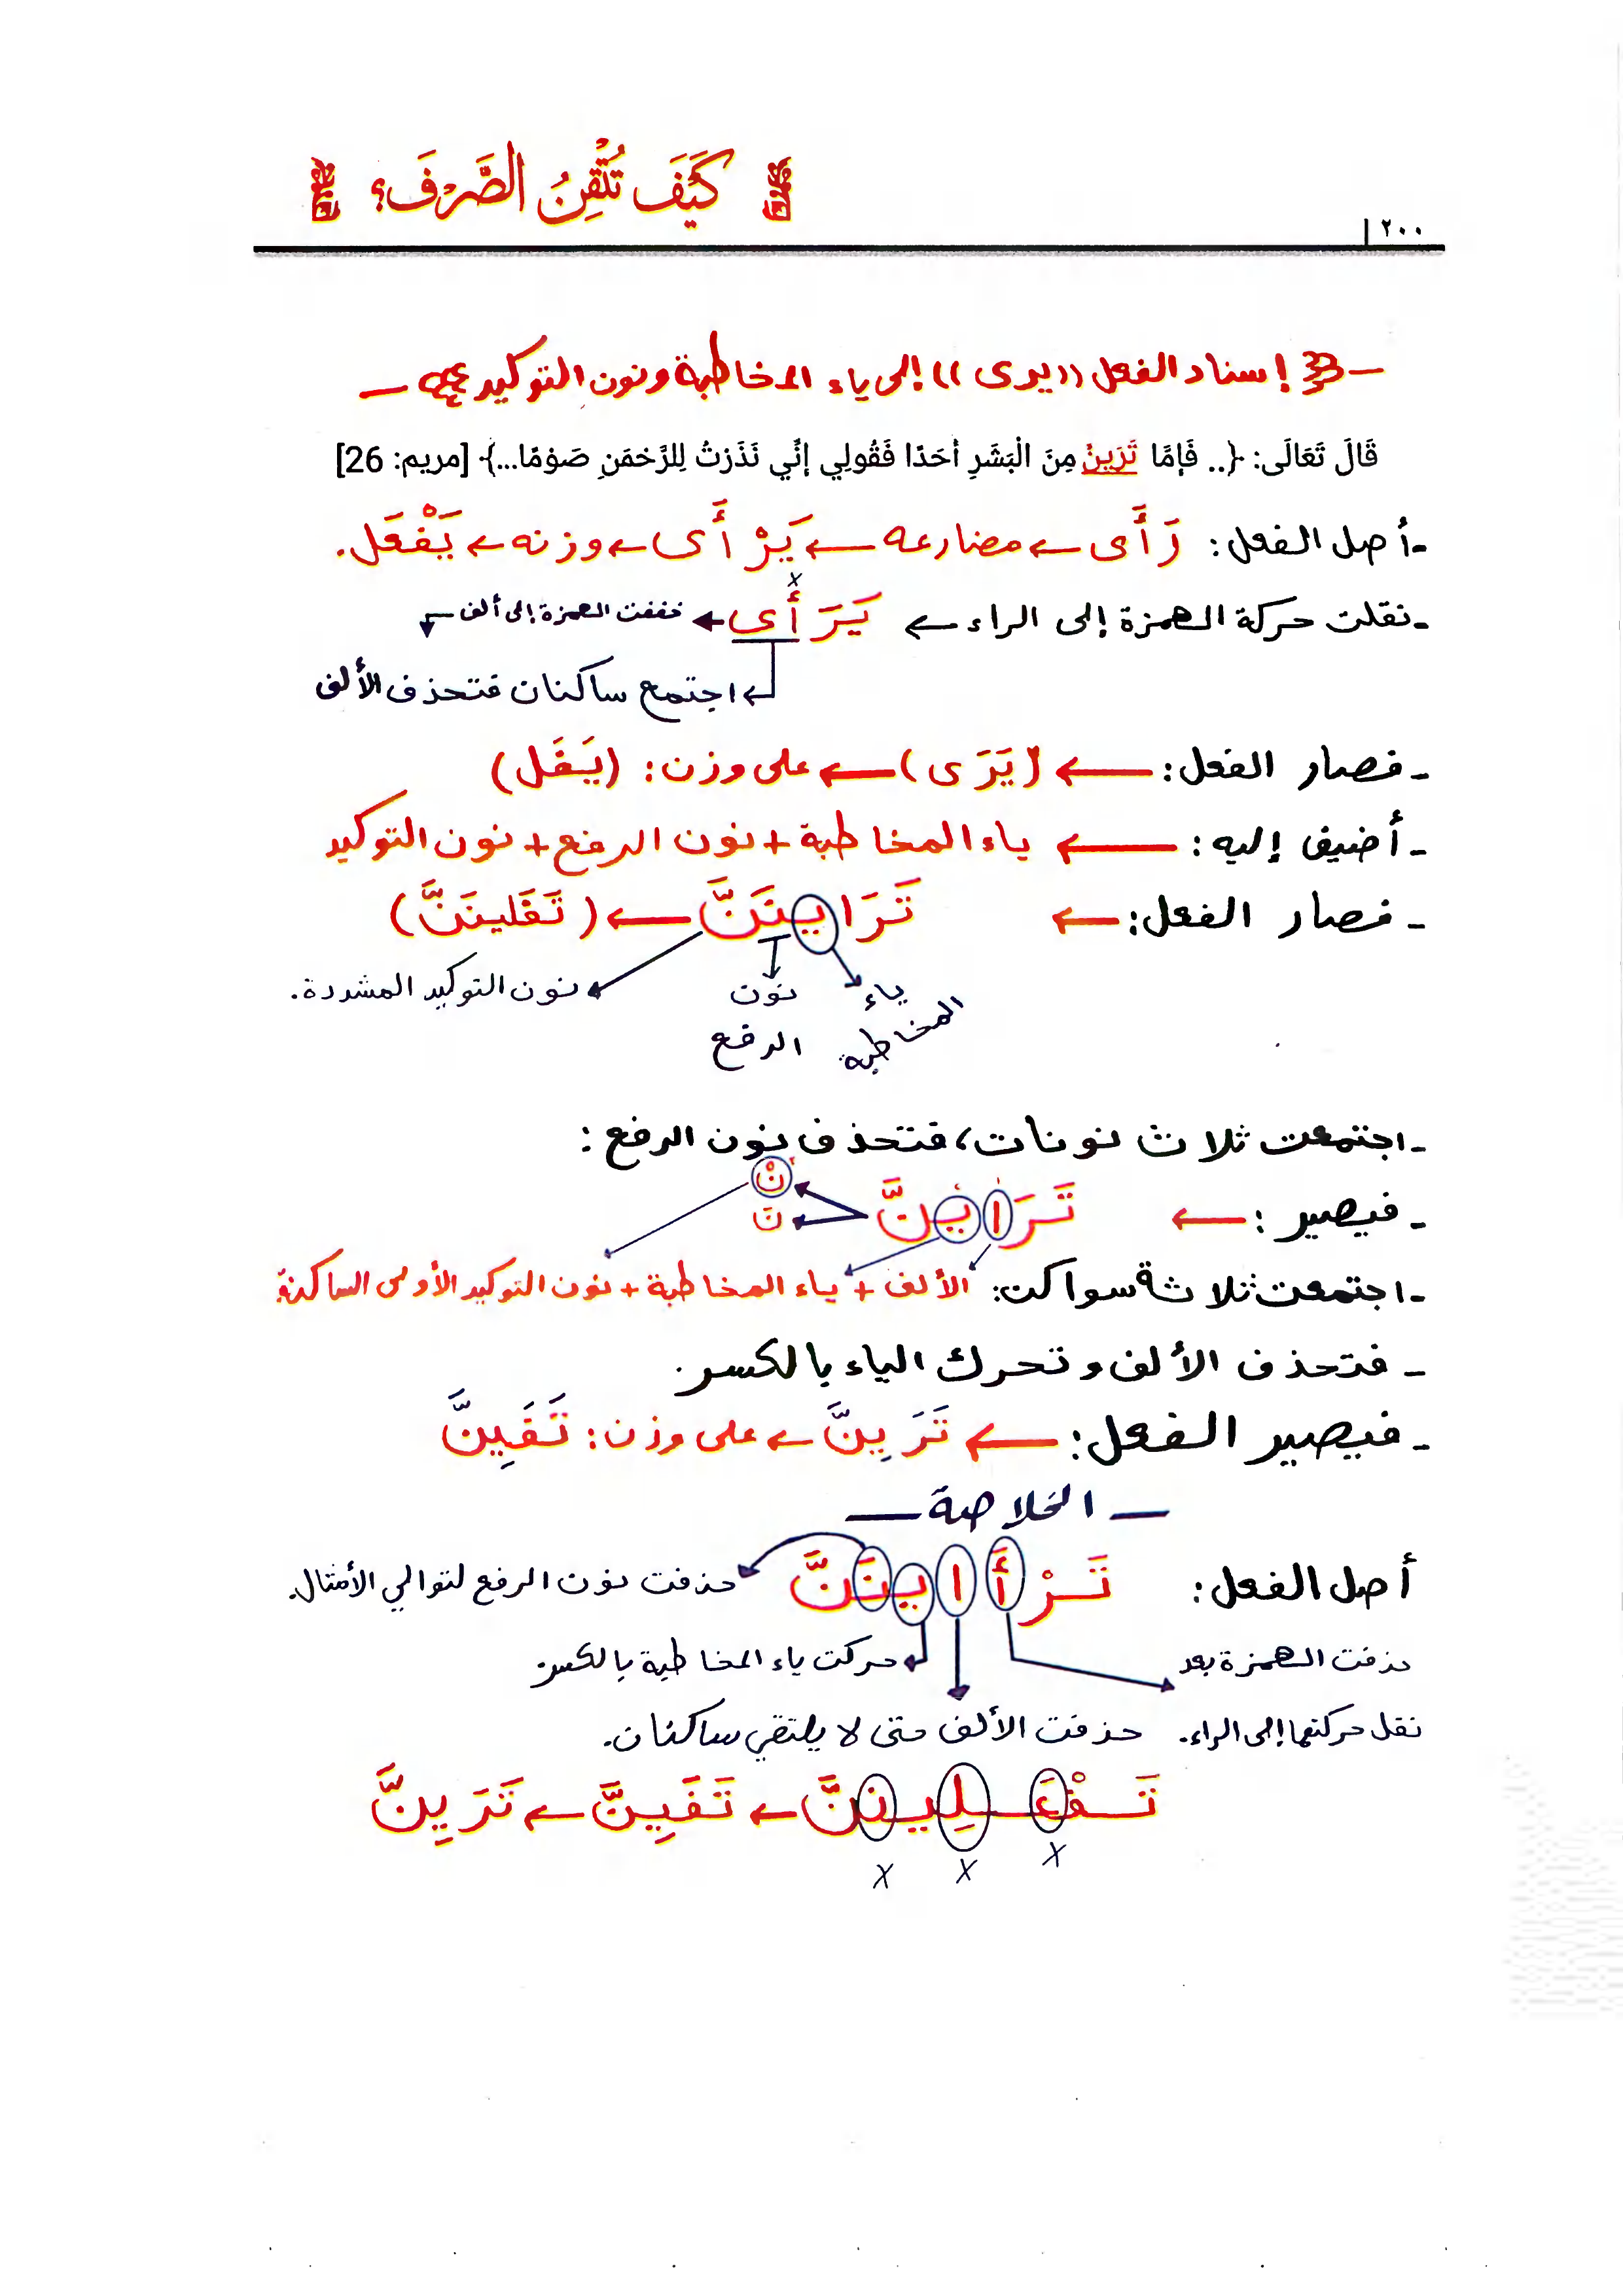 كَيْفَ تُتْقِنُ الصَّرْفَ؟
٢٠٠
إسناد الفعل ((يرى)) إلى ياء المخاطبة ونون التوكيد
قَالَ تَعَالَى: {.. فَإِمَّا تَرَيِنَّ مِنَ الْبَشَرِ أَحَدًا فَقُولِي إِنِّي نَذَرْتُ لِلرَّحْمَنِ صَوْمًا...} [مريم: 26]
- أصل الفعل: رَأَى ← مضارعه ← يَرْأَى ← وزنه ← يَفْعَل.
- نقلت حركة الهمزة إلى الراء ← يَرَأْى ← خففت الهمزة إلى ألف
x
← اجتمع ساكنان فتحذف الألف
- فصار الفعل: ← (يَرَى) ← على وزن: (يَفَل)
- أضيف إليه: ← ياء المخاطبة + نون الرفع + نون التوكيد
- فصار الفعل: ← تَرَاينَنَّ ← (تَفَلينَنَّ)
ياء المخاطبة
نون الرفع
نون التوكيد المشددة.
- اجتمعت ثلاث نونات، فتحذف نون الرفع:
- فيصير: ← تَرَاينَّ
نْ
نَ
- اجتمعت ثلاثة سواكن: الألف + ياء المخاطبة + نون التوكيد الأولى الساكنة
- فتحذف الألف و تحرك الياء بالكسر.
- فيصير الفعل: ← تَرَيِنَّ ← على وزن: تَفَيِنَّ
— الخلاصة —
أصل الفعل: تَرْأَاينَنَّ حذفت نون الرفع لتوالي الأمثال.
حذفت الهمزة بعد نقل حركتها إلى الراء.
حركت ياء المخاطبة بالكسر
حذفت الألف حتى لا يلتقي ساكنان.
تَفْعَلِينَنَّ ← تَفَيِنَّ ← تَرَيِنَّ
x x x